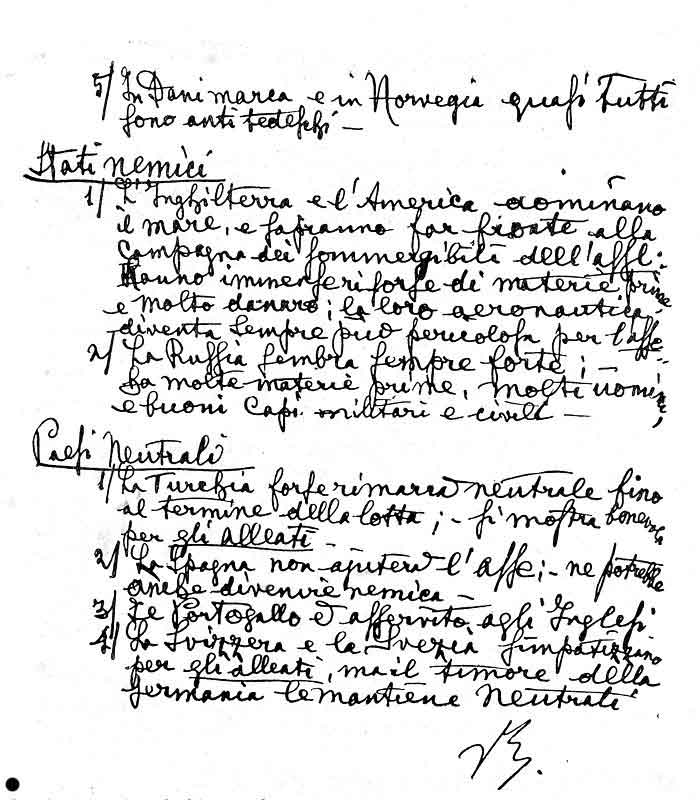 5/ In Danimarca e in Norvegia quasi tutti
sono antitedeschi —
Stati nemici
1/ L'Inghilterra e l'America dominano
il mare, e sapranno far fronte alla
Campagna dei sommergibili dell'asse:
Hanno immense risorse di materie prime
e molto danaro; la loro aeronautica
diventa sempre più pericolosa per l'asse
2/ La Russia sembra sempre forte; —
ha molte materie prime, molti uomini,
e buoni Capi militari e civili —
Paesi Neutrali
1/ La Turchia forse rimarrà neutrale fino
al termine della lotta; - si mostra benevola
per gli alleati —
2/ La Spagna non ajuterà l'asse; - ne potrebbe
anche divenire nemica —
3/ Le Portogallo è asservito agli Inglesi
4/ La Svizzera e la Svezia simpatizzano
per gli alleati, ma il timore della
Germania le mantiene Neutrali